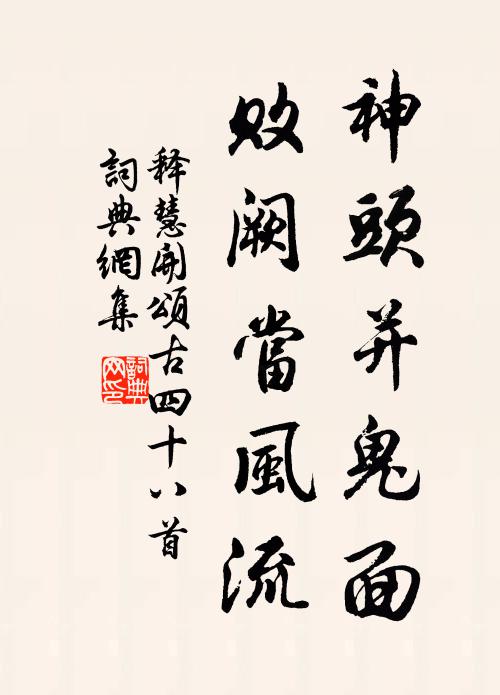 神頭并鬼面
敗阙當風流
释慧開頌古四十八首
詞典網集
詞典網印